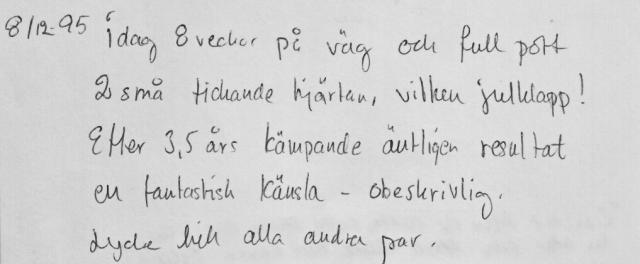 8/12-95 idag 8 veckor på väg och full pott
2 små tickande hjärtan, vilken julklapp!
Efter 3,5 års kämpande äntligen resultat
en fantastisk känsla - obeskrivlig.
Lycka till alla andra par.